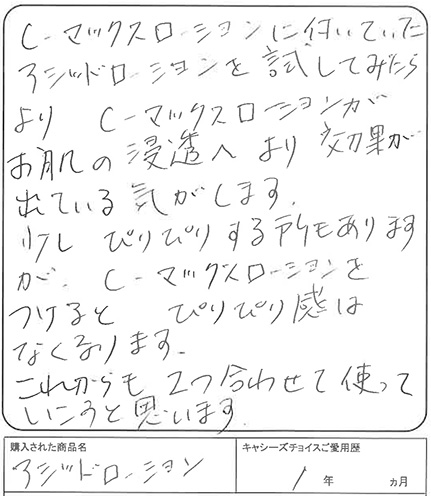 C-マックスローションに付いていた
アシッドローションを試してみたら
より C-マックスローションが
お肌の浸透へより効果が
出ている気がします。
少し ぴりぴりする所もあります
が、C-マックスローションを
つけると ぴりぴり感は
なくなります。
これからも 2つ合わせて使って
いこうと思います。
購入された商品名
アシッドローション
キャシーズチョイスご愛用歴
1年 ヵ月